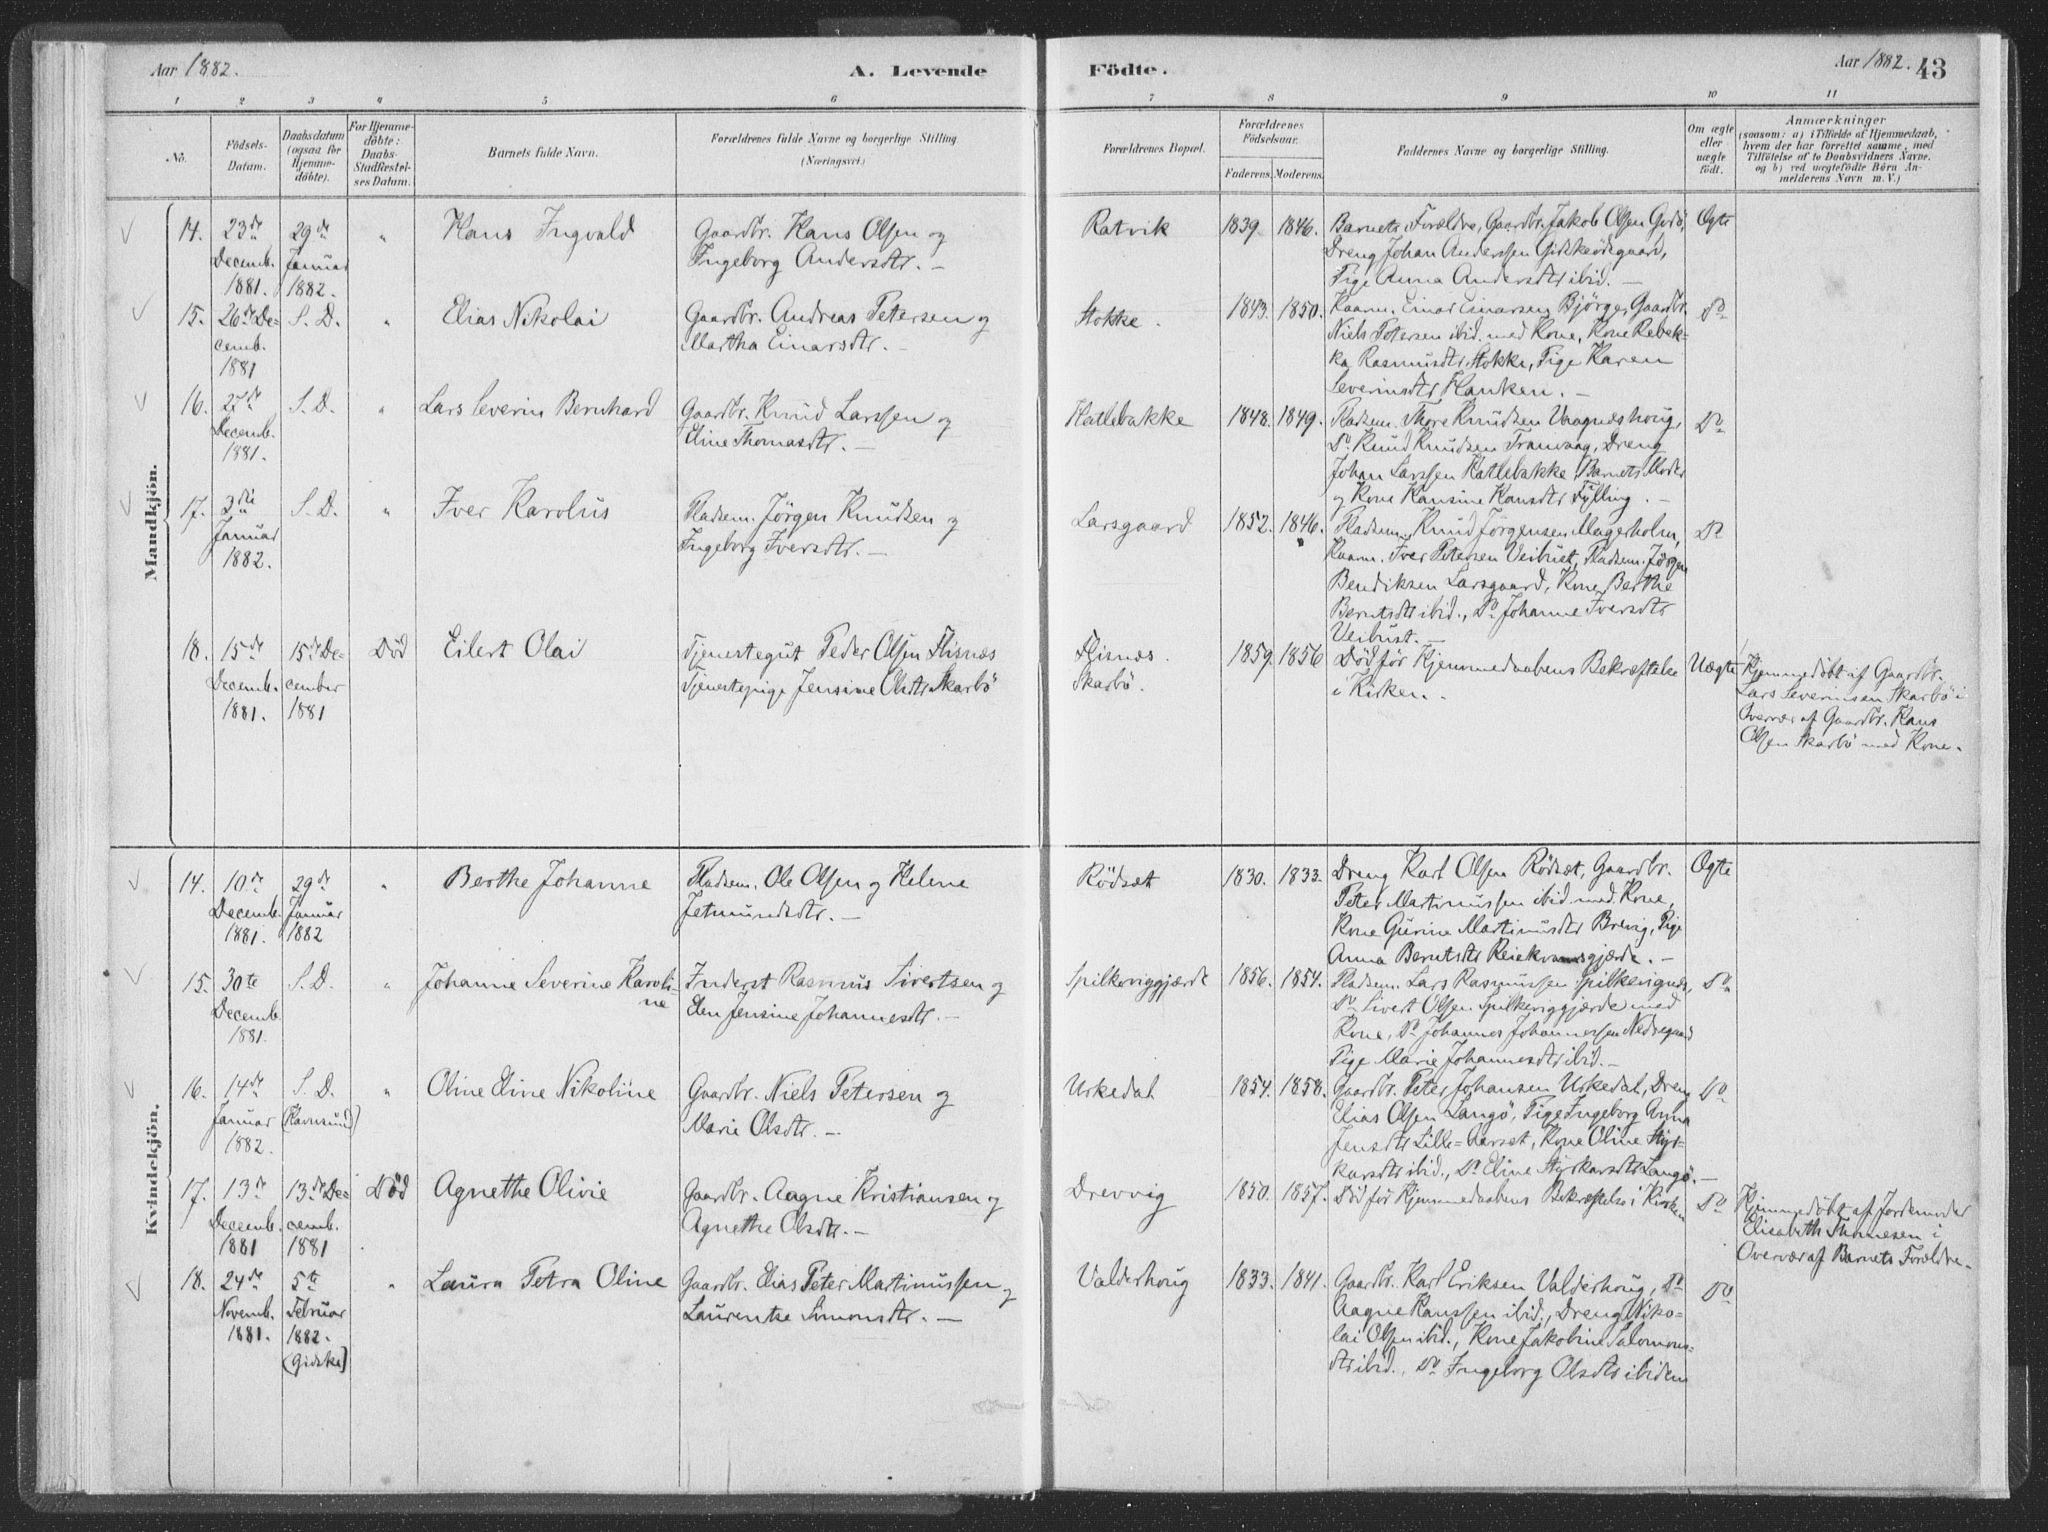 Aar 1882.
A. Levende
Födte.
Aar 1882.
43
1 2 3 4 5 6 7 8 9 10 11
No.
Födsels-
Datum.
Daabsdatum
(ogsaa for
Hjemme-
döbte).
For Hjemme-
döbte:
Daabs-
Stadfæstel-
ses Datum.
Barnets fulde Navn.
Forældrenes fulde Navne og borgerlige Stilling
(Næringsvei.)
Forældrenes Bopæl.
Forældrenes
Födselsaar.
Faderens. Moderens.
Faddernes Navne og borgerlige Stilling.
Om ægte
eller
uægte
födt.
Anmærkninger
(saasom: a) i Tilfælde af Hjemmedaab,
hvem der har forrettet samme, med
Tilföielse af to Daabsvidners Navne.
og b) ved uægtefödte Börn An-
melderens Navn m. V.)
Mandkjön.
14.
23de
Decemb.
1881.
29de
Januar
1882.
"
Hans Ingvald
Gaardbr. Hans Olsen og
Ingeborg Andersdtr. —
Ratvik
1839 1846.
Barnets Forældre, Gaardbr. Jakob Olsen Godö,
Dreng Johan Anderssen Gidskeödegaard,
Pige Anna Andersdtr ibid. —
Ægte
15.
26de De-
cemb.
1881
S. D.
"
Elias Nikolai
Gaardbr. Andreas Petersen og
Martha Einarsdtr. —
Stokke.
1843. 1850.
Kaarm. Einar Einarsen Björge, Gaardbr.
Niels Petersen ibid. med Kone, Kone Rebek-
ka Rasmusdtr Stokke, Pige Karen
Severinsdtr Flanken. —
Do
16.
27de
Decemb.
1881.
S. D.
"
Lars Severin Bernhard
Gaardbr. Knud Larssen og
Eline Thomasdtr. —
Hatlebakke
1848. 1849.
Pladsem. Thore Knudsen Vaagneshoug,
Do Knud Knudsen Tranvaag, Dreng
Johan Larssen Hatlebakke, Barnets Moder
og Kone Hansine Hansdtr Fylling. —
Do
17.
3die
Januar
1882.
S. D.
"
Iver Karolus
Pladsem. Jörgen Knudsen og
Ingeborg Iversdtr. —
Larsgaard
1852. 1846.
Pladsem. Knud Jörgensen Magerholm,
Kaarm. Iver Petersen Veibust, Pladsem. Jörgen
Bendiksen Larsgaard, Kone Berthe
Berntsdtr ibid., Do Johanne Iversdtr
Veibust. —
Do
18.
15de
Decemb.
1881.
15de De-
cember
1881
Död
Eilert Olai
Tjenestegut Peder Olsen Flisnæs
Tjenestepige Jensine Olsdtr Skarbö
Flisnæs.
Skarbö.
1859. 1856
Död för Hjemmedaabens Bekræftelse
i Kirken.
Uægte
Hjemmedöbt af Gaardbr.
Lars Severinsen Skarbö i
Overvær af Gaardbr. Hans
Olsen Skarbö med Kone.
Kvindekjön.
14.
10de
Decemb.
1881.
29de
Januar
1882
"
Berthe Johanne
Pladsem. Ole Olsen og Helene
Jetmundsdtr. —
Rödsæt
1830. 1833.
Dreng Karl Olsen Rödsæt, Gaardbr.
Peter Martinussen ibid. med Kone,
Kone Gurine Martinusdtr Brevig, Pige
Anna Berntsdtr Reiekvamsgjærde. —
Ægte
15.
30te
Decemb.
1881.
S. D.
"
Johanne Severine Karoli-
ne
Inderst Rasmus Sivertsen og
Elen Jensine Johannesdtr. —
Spilkeviggjærde
1856. 1854.
Pladsem. Lars Rasmussen Spilkevignæs,
Do Sivert Olsen Spilkeviggjærde med
Kone, Do Johannes Johannessen Nedregaard
Pige Marie Johannesdtr ibid. —
Do
16.
14de
Januar
1882.
S. D.
(Havnsund)
"
Oline Eline Nikoline
Gaardbr. Niels Petersen og
Marie Olsdtr. —
Urkedal
1854. 1858.
Gaardbr. Peter Johansen Urkedal, Dreng
Elias Olsen Langö, Pige Ingeborg Anna
Jensdtr Lille-Aarset, Kone Oline Styr-
karsdtr ibid., Do Eline Styrkarsdtr Langö. —
Do
17.
13de
Decemb.
1881
13de De-
cemb.
1881
Död
Agnethe Olivie
Gaardbr. Aagne Kristiansen og
Agnethe Olsdtr. —
Drevvig
1850. 1857.
Död för Hjemmedaabens Bekræftelse i Kirken
Do
Hjemmedöbt af Jordemoder
Elisabeth Thomesen i
Overvær af Barnets Forældre.
18.
24de
Novemb.
1881.
5te
Februar
1882.
(Gidske)
"
Laura Petra Oline
Gaardbr. Elias Peter Martinussen og
Laurentse Simonsdtr. —
Valderhoug
1833. 1841.
Gaardbr. Karl Eriksen Valderhoug, Do
Aagne Hanssen ibid., Dreng Niko-
lai Olsen ibid., Kone Jakobine Salomons-
dtr ibid., Do Ingeborg Olsdtr ibidem
Do